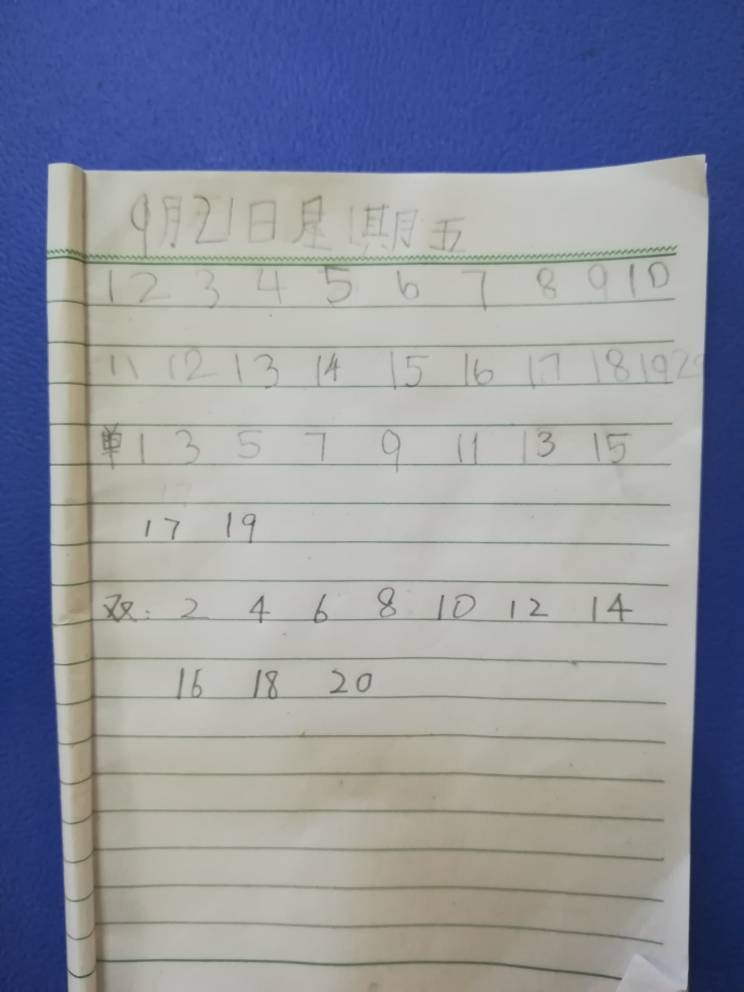 9月21日星期五
1 2 3 4 5 6 7 8 9 10
11 12 13 14 15 16 17 18 19 20
单 1 3 5 7 9 11 13 15
17 19
双: 2 4 6 8 10 12 14
16 18 20